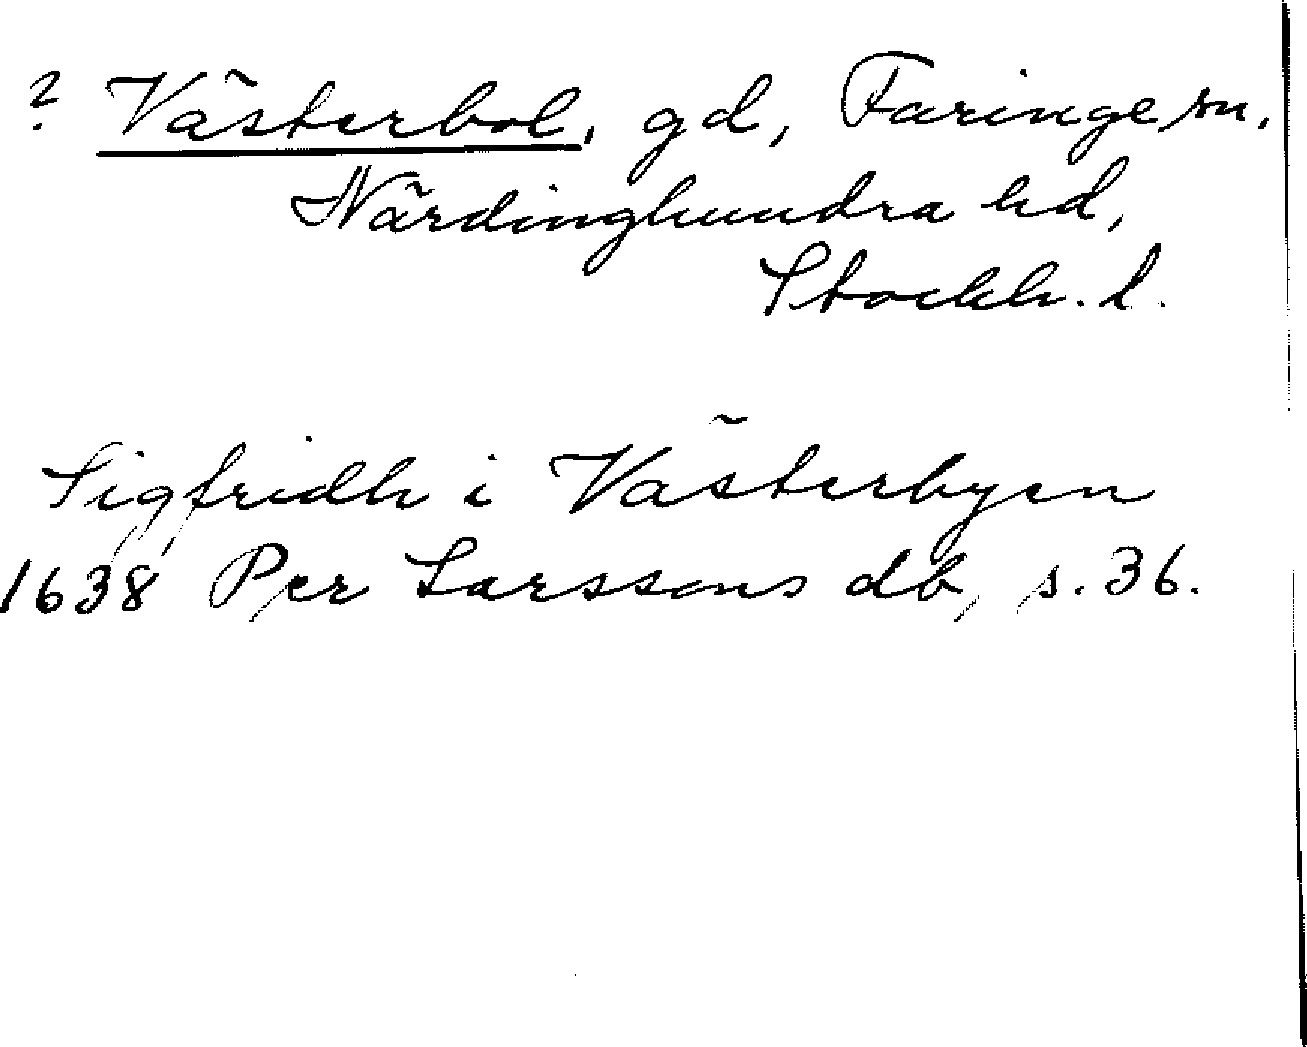 ? Västerbol, gd, Faringe sn,
Närdinghundra hd,
Stockh. l.
Sigfridh i Västerbyen
1638 Per Larssons db, s. 36.